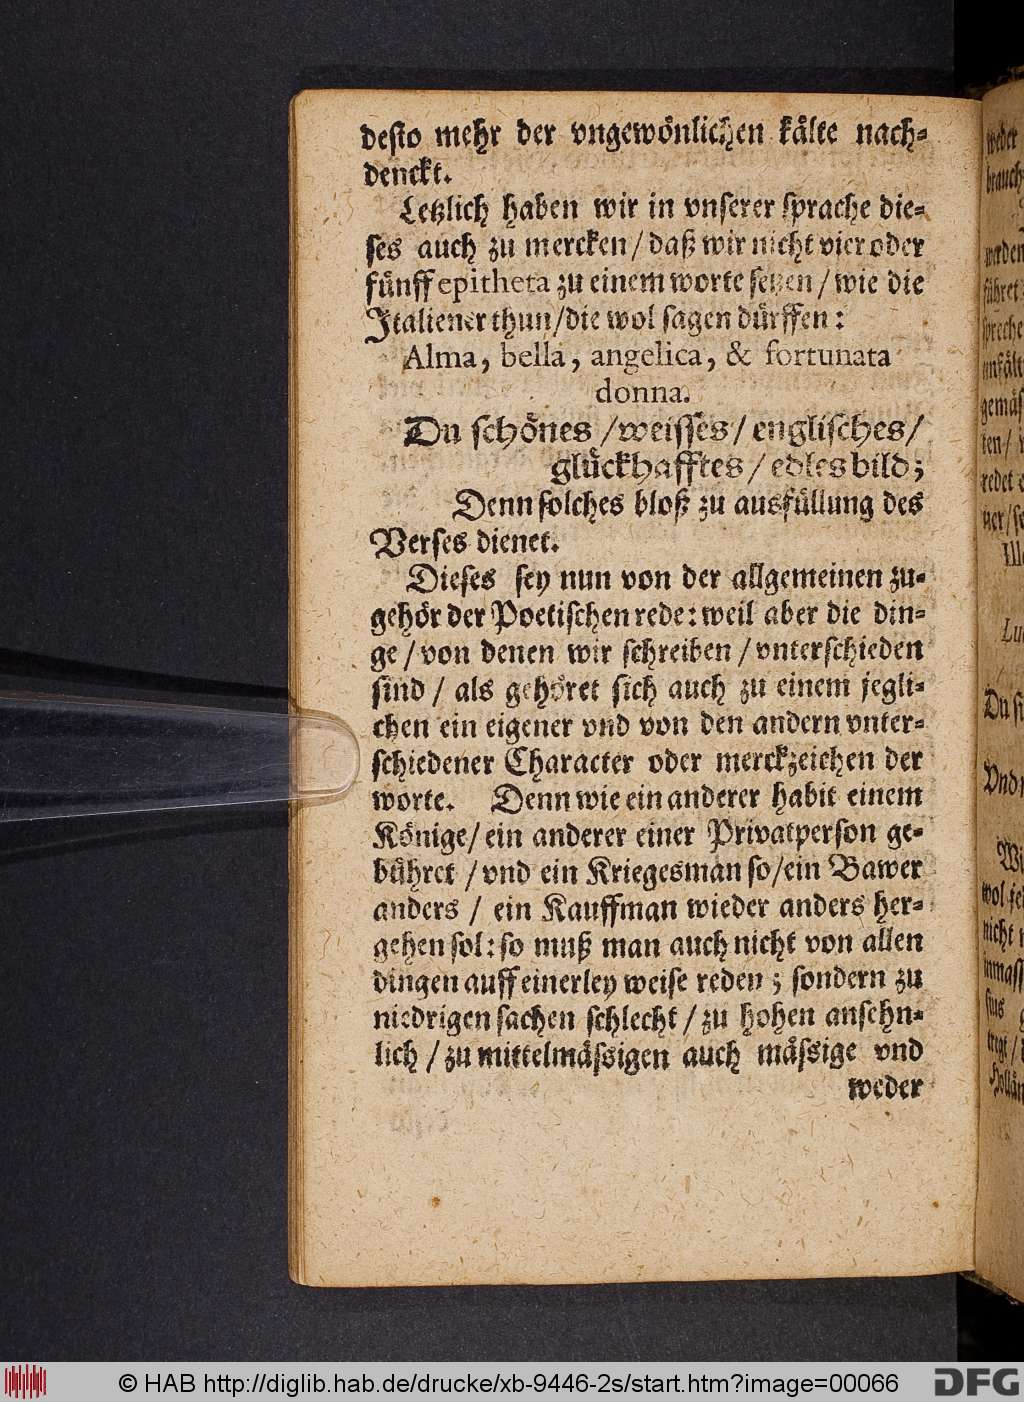 desto mehr der vngewönlichen kälte nach-
denckt.
Letzlich haben wir in vnserer sprache die-
ses auch zu mercken / daß wir nicht vier oder
fünff epitheta zu einem worte setzen / wie die
Italiener thun / die wol sagen dürffen:
Alma, bella, angelica, & fortunata
donna.
Du schönes / weisses / englisches /
glückhafftes / edles bild;
Denn solches bloß zu ausfüllung des
Verses dienet.
Dieses sey nun von der allgemeinen zu-
gehör der Poetischen rede: weil aber die din-
ge / von denen wir schreiben / vnterschieden
sind / als gehöret sich auch zu einem jegli-
chen ein eigener vnd von den andern vnter-
schiedener Character oder merckzeichen der
worte. Denn wie ein anderer habit einem
Könige / ein anderer einer Privatperson ge-
bühret / vnd ein Kriegesman so / ein Bawer
anders / ein Kauffman wieder anders her-
gehen sol: so muß man auch nicht von allen
dingen auff einerley weise reden; sondern zu
niedrigen sachen schlecht / zu hohen ansehn-
lich / zu mittelmässigen auch mässige vnd
weder
© HAB http://diglib.hab.de/drucke/xb-9446-2s/start.htm?image=00066
DFG